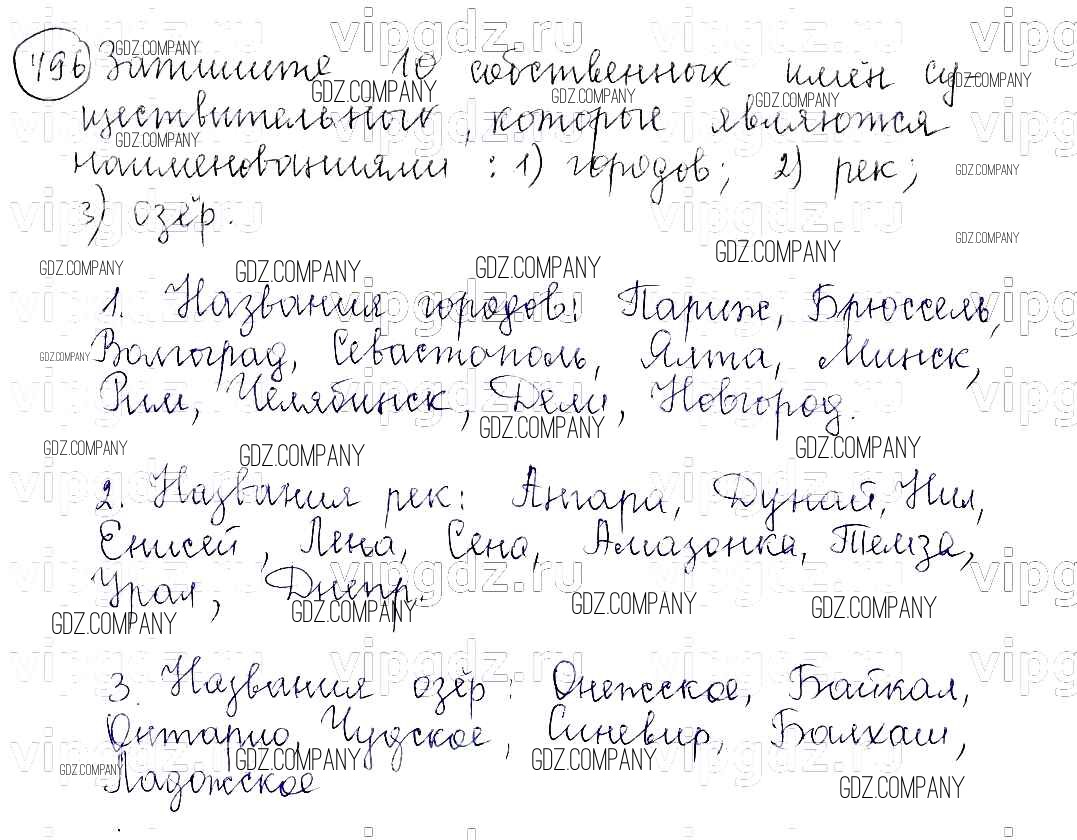 496 Запишите 10 собственных имён су-
ществительных, которые являются
наименованиями: 1) городов; 2) рек;
3) озёр.
1. Названия городов: Париж, Брюссель,
Волгоград, Севастополь, Ялта, Минск,
Рим, Челябинск, Дели, Новгород.
2. Названия рек: Ангара, Дунай, Нил,
Енисей, Лена, Сена, Амазонка, Темза,
Урал, Днепр.
3. Названия озёр: Онежское, Байкал,
Онтарио, Чудское, Синевир, Балхаш,
Ладожское
vipgdz.ru
GDZ.COMPANY